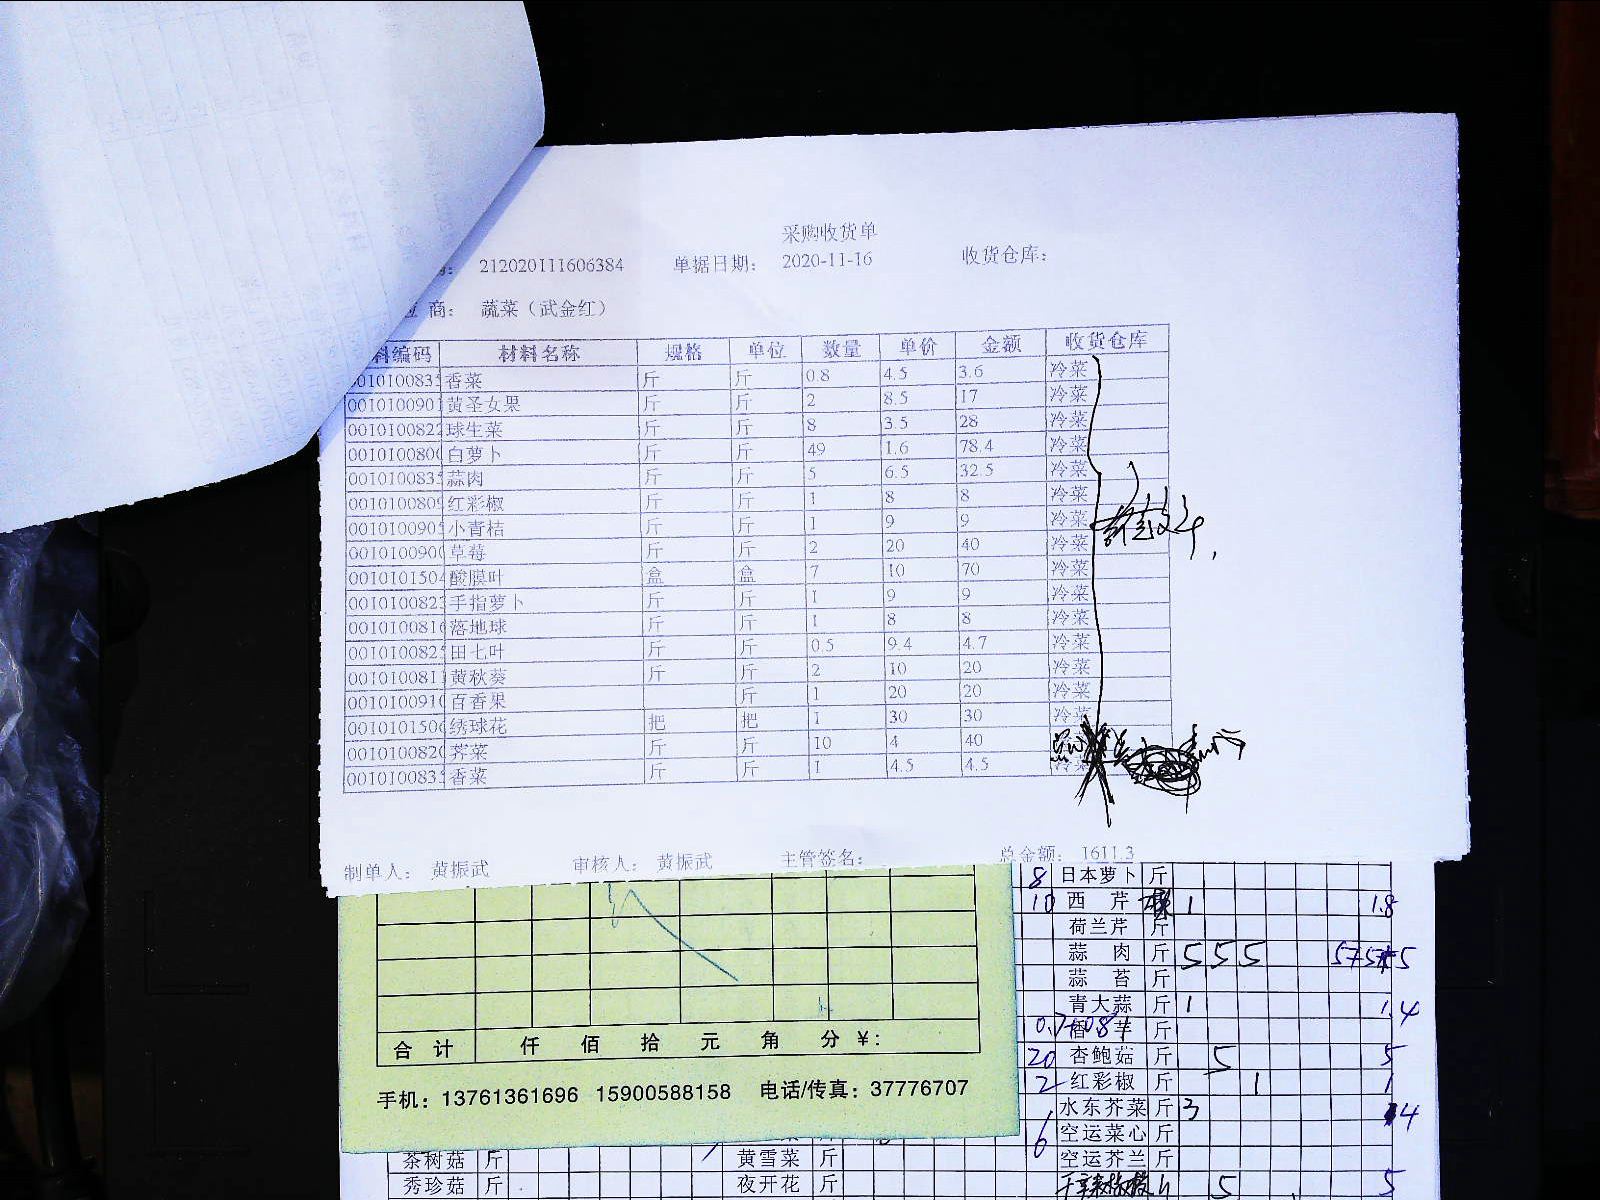 采购收货单
212020111606384 单据日期： 2020-11-16 收货仓库：
商： 蔬菜（武金红）
料编码 材料名称 规格 单位 数量 单价 金额 收货仓库
0010100835 香菜 斤 斤 0.8 4.5 3.6 冷菜
0010100901 黄圣女果 斤 斤 2 8.5 17 冷菜
0010100822 球生菜 斤 斤 8 3.5 28 冷菜
001010080 白萝卜 斤 斤 49 1.6 78.4 冷菜
001010083 蒜肉 斤 斤 5 6.5 32.5 冷菜
001010080 红彩椒 斤 斤 1 8 8 冷菜
001010090 小青桔 斤 斤 1 9 9 冷菜
001010090 草莓 斤 斤 2 20 40 冷菜
001010150 酸膜叶 盒 盒 7 10 70 冷菜
001010082 手指萝卜 斤 斤 1 9 9 冷菜
001010081 落地球 斤 斤 1 8 8 冷菜
001010082 田七叶 斤 斤 0.5 9.4 4.7 冷菜
001010081 黄秋葵 斤 斤 2 10 20 冷菜
001010091 百香果 斤 1 20 20 冷菜
001010150 绣球花 把 把 1 30 30 冷菜
001010082 荠菜 斤 斤 10 4 40
001010083 香菜 斤 斤 1 4.5 4.5
制单人： 黄振武 审核人： 黄振武 主管签名： 总金额： 1611.3
合 计 仟 佰 拾 元 角 分 ¥:
手机：13761361696 15900588158 电话/传真：37776707
8 日本萝卜 斤
10 西 芹 1 1.8
荷兰芹 斤
蒜 肉 斤 5 5 5
蒜 苔 斤
青大蒜 斤 1 1.4
香 芋 斤
20 杏鲍菇 斤 5 5
2 红彩椒 斤 1 1
水东芥菜 斤 3 4
6 空运菜心 斤
空运芥兰 斤
5 5
茶树菇 斤 黄雪菜 斤
秀珍菇 斤 夜开花 斤